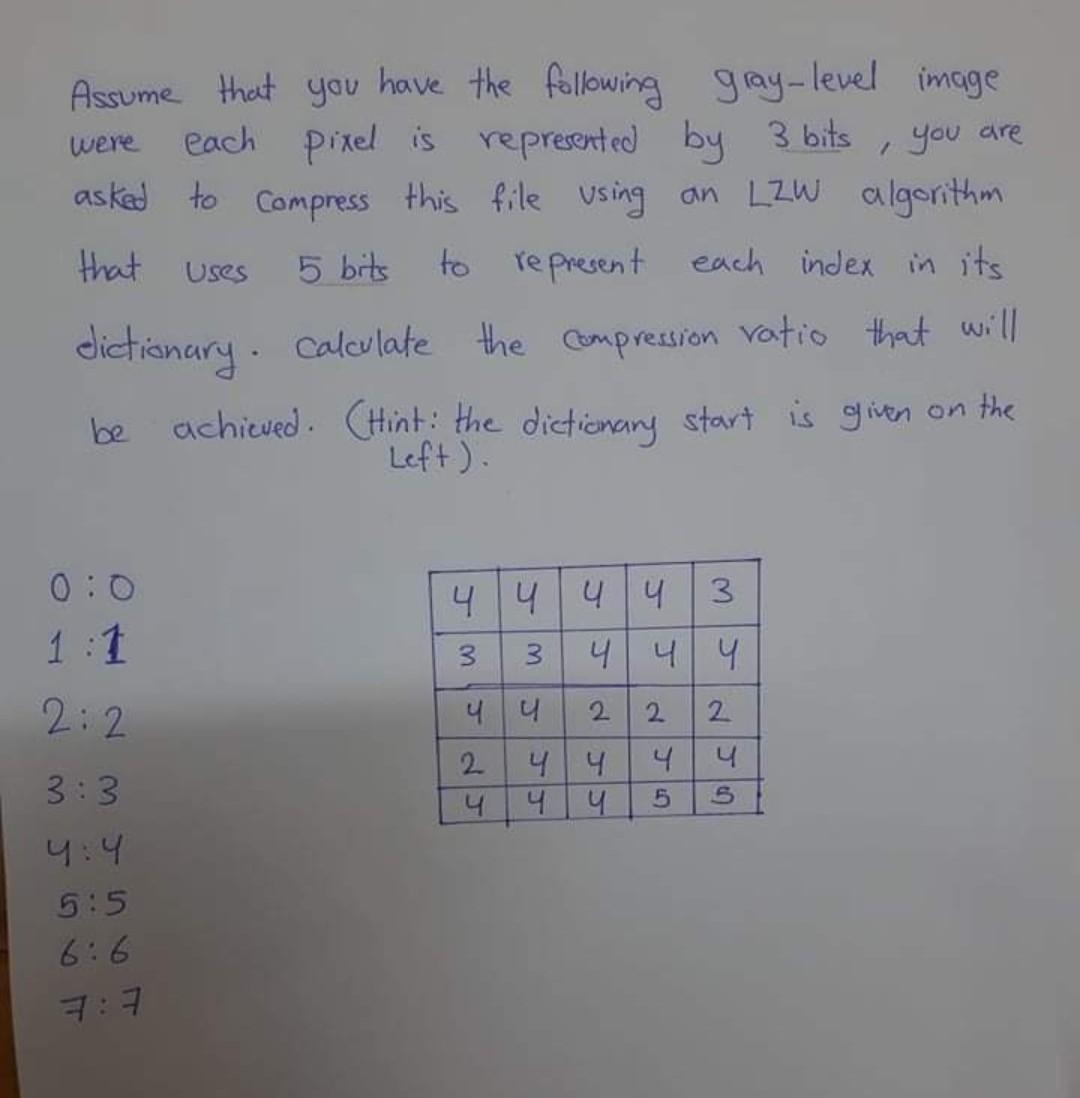 Assume that you have the following gray-level image
were each pixel is represented by 3 bits , you are
asked to compress this file using an LZW algorithm
that uses 5 bits to represent each index in its
dictionary. calculate the compression ratio that will
be achieved. (Hint: the dictionary start is given on the
Left).
0:0
1:1
2:2
3:3
4:4
5:5
6:6
7:7
4 4 4 4 3
3 3 4 4 4
4 4 2 2 2
2 4 4 4 4
4 4 4 5 5